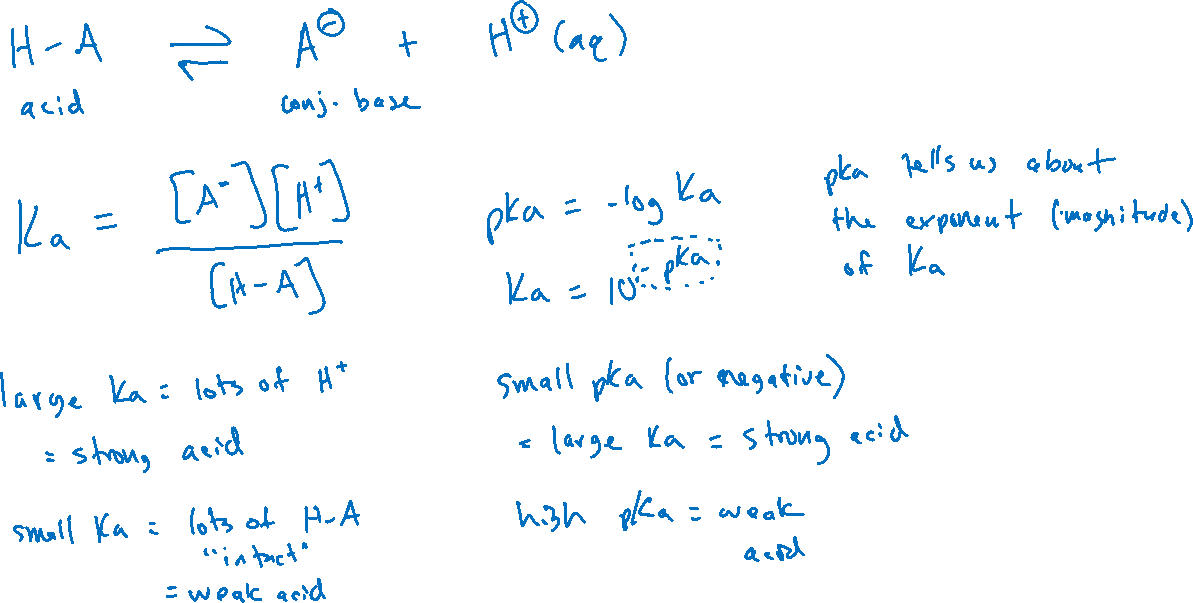 H-A ⇌ A⊖ + H⊕ (aq)
acid conj. base
Ka = [A⁻][H⁺] / [H-A]
pKa = -log Ka
Ka = 10^-pKa
pKa tells us about
the exponent (magnitude)
of Ka
large Ka = lots of H⁺
= strong acid
small Ka = lots of H-A
"intact"
= weak acid
small pKa (or negative)
= large Ka = strong acid
high pKa = weak
acid